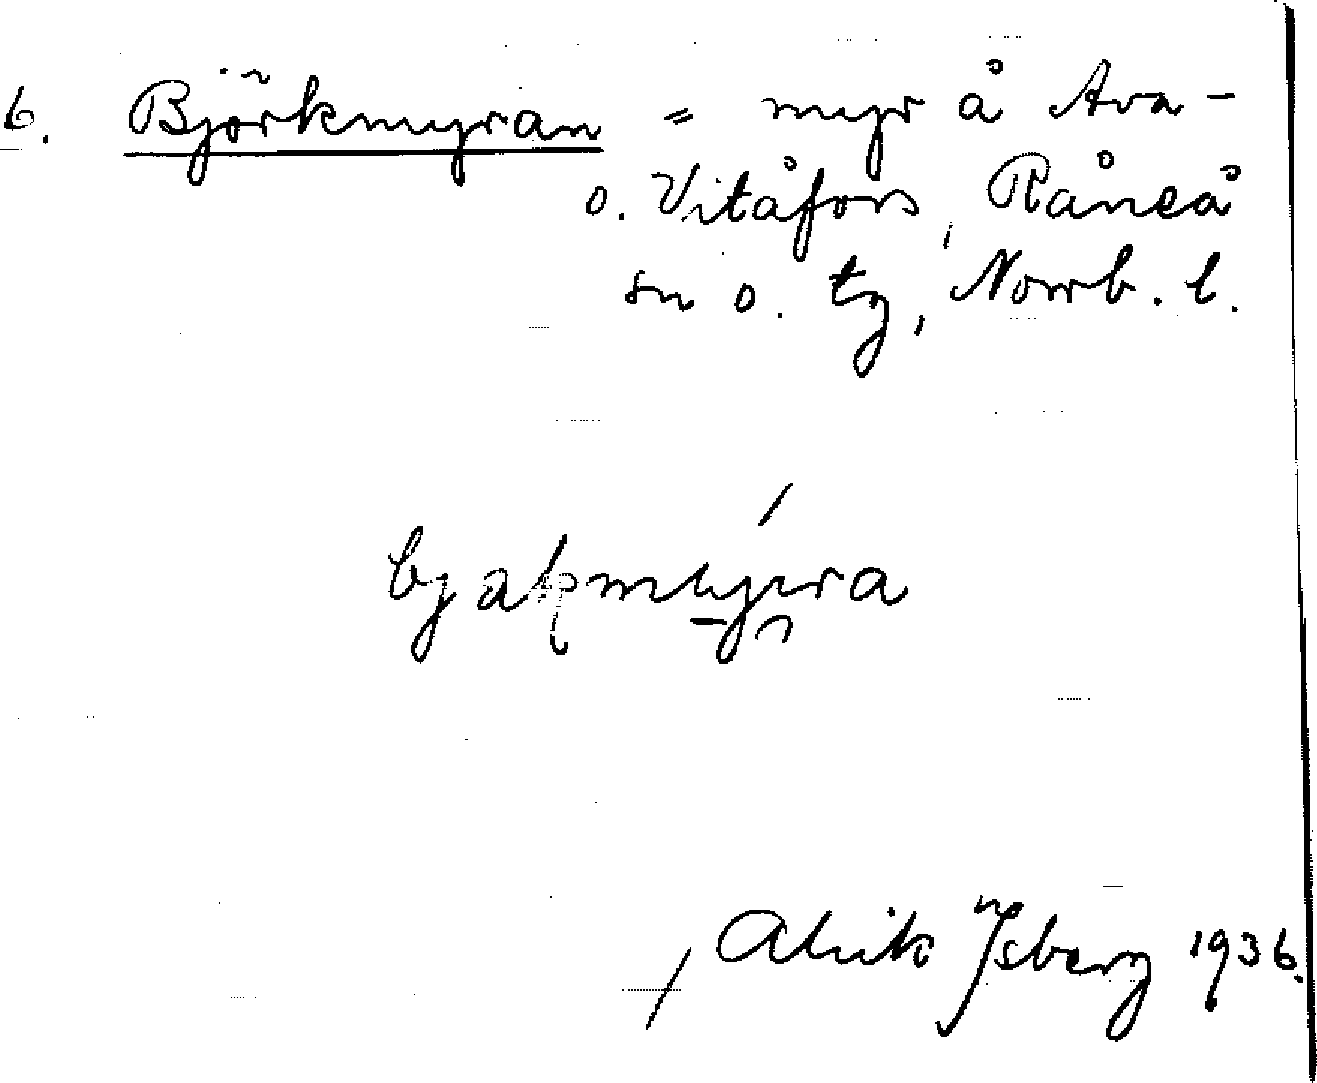 6. Björkmyran = myr å Ava-
o. Vitåfors, Råneå
sn o. tg, Norrb. l.
Alrik Ysberg 1936.